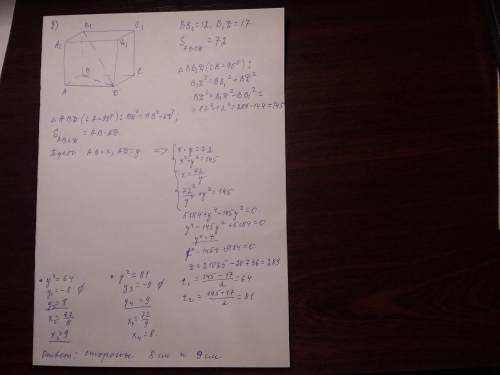 2)
B₁ C₁
A₁ D₁
B C
A D
BB₁=12, B₁D=17
S_ABCD = 72
△BB₁D(∠B=90°):
B₁D²=BB₁²+BD²
BD²=B₁D²-BB₁²=
=17²-12²=289-144=145
△ABD(∠A=90°): BD²=AB²+AD²;
S_ABCD = AB·AD
AB=x, AD=y =>
x·y=72
x²+y²=145
x=72/y
72²/y²+y²=145
5184+y⁴-145y²=0
y⁴-145y²+5184=0
y²=t
t²-145t+5184=0
D=21025-20736=289
t₁=(145-17)/2=64
t₂=(145+17)/2=81
• y²=64
y₁=-8 ∅
y₂=8
x₂=72/8
x₂=9
• y²=81
y₃=-9 ∅
y₄=9
x₄=72/9
x₄=8
Ответ: стороны 8 см и 9 см